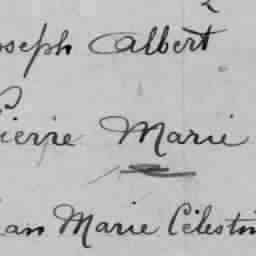 oseph Albert
ierre Marie
ean Marie Célestin